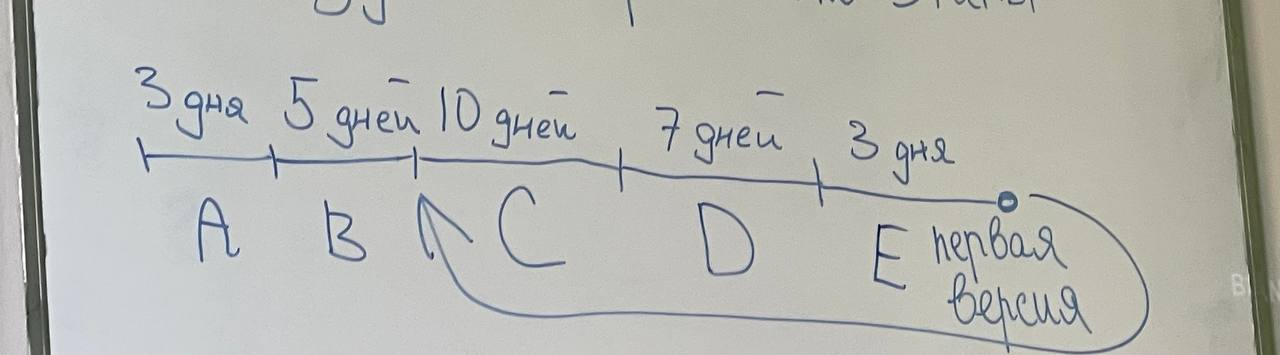 3 дня 5 дней 10 дней 7 дней 3 дня
A B C D E первая
версия